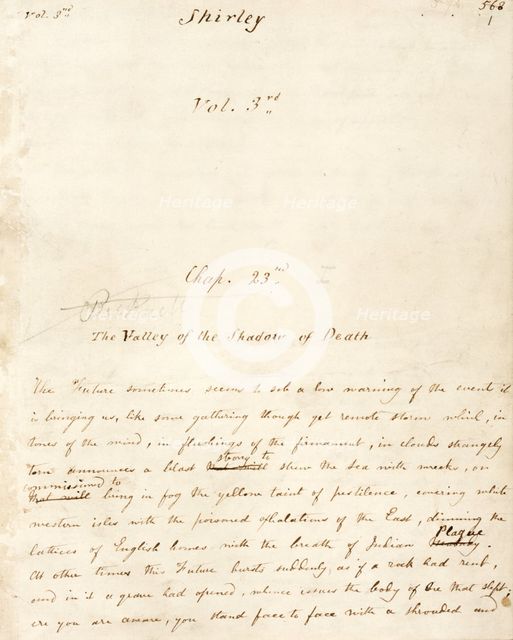 Vol. 3rd
Shirley
568
1
Vol. 3rd
Chap. 23rd I
The Valley of the Shadow of Death
The Future sometimes seems to sob a low warning of the events it
is bringing us, like some gathering though yet remote storm which, in
tones of the wind, in flushings of the firmament, in clouds strangely
torn announces a blast strong to strew the sea with wrecks, or
commissioned to
that will bring in fog the yellow taint of pestilence, covering white
western isles with the poisoned exhalations of the East, dimming the
Plague
lattices of English homes with the breath of Indian
At other times this Future bursts suddenly, as if a rock had rent,
and in it a grave had opened, whence issues the body of One that slept;
ere you are aware, you stand face to face with a shrouded and
Heritage
Heritage
Heritage
Heritage
Heritage
Heritage